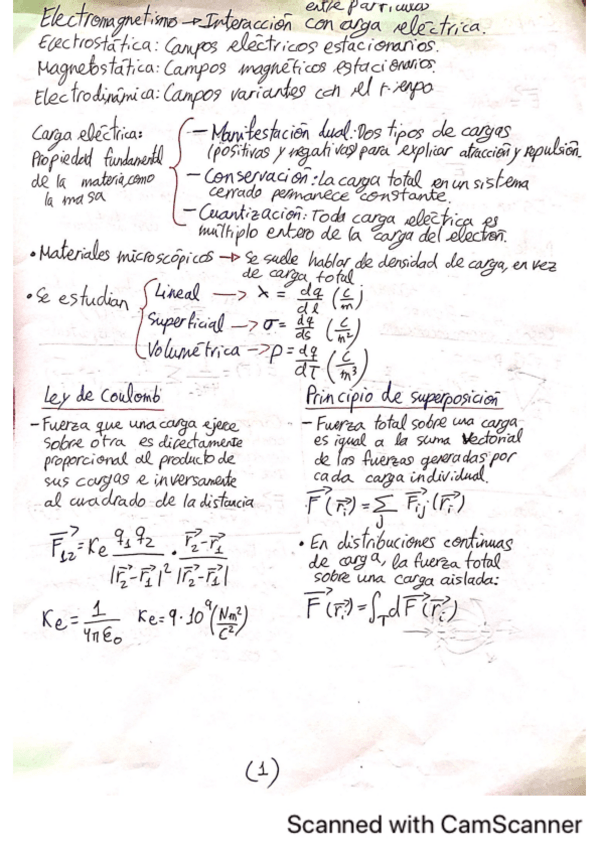 entre partículas
Electromagnetismo → Interacción con carga eléctrica.
Electrostática: Campos eléctricos estacionarios.
Magnetostática: Campos magnéticos estacionarios.
Electrodinámica: Campos variantes con el tiempo
Carga eléctrica:
Propiedad fundamental
de la materia, como
la masa
— Manifestación dual: Dos tipos de cargas
(positivas y negativas) para explicar atracción y repulsión.
— Conservación: La carga total en un sistema
cerrado permanece constante.
— Cuantización: Toda carga eléctrica es
múltiplo entero de la carga del electrón.
• Materiales microscópicos → Se suele hablar de densidad de carga, en vez
de carga total
• Se estudian
Lineal → λ = dq/dl (C/m)
Superficial → σ = dq/ds (C/m²)
Volumétrica → ρ = dq/dT (C/m³)
Ley de Coulomb
- Fuerza que una carga ejerce
sobre otra es directamente
proporcional al producto de
sus cargas e inversamente
al cuadrado de la distancia
F₁₂ = Ke q₁q₂/|r₂-r₁|² · r₂-r₁/|r₂-r₁|
Ke = 1/4πε₀ Ke = 9·10⁹ (Nm²/C²)
Principio de superposición
- Fuerza total sobre una carga
es igual a la suma vectorial
de las fuerzas generadas por
cada carga individual.
F(rᵢ) = Σj Fᵢj(rᵢ)
• En distribuciones continuas
de carga, la fuerza total
sobre una carga aislada:
F(rᵢ) = ∫T dF(rᵢ)
(1)
Scanned with CamScanner